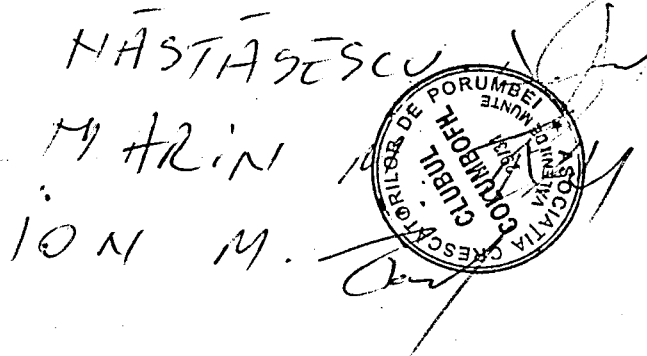 NĂSTĂSESCU
MARIN
ION M.
ASOCIAȚIA CRESCĂTORILOR DE PORUMBEI *
CLUBUL
COLUMBOFIL
VĂLENII DE MUNTE